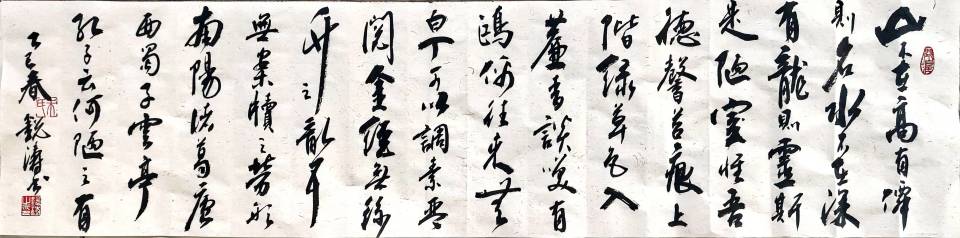 山不在高有僊
則名水不在深
有龍則靈斯
是陋室惟吾
德馨苔痕上
階緑草色入
簾青談笑有
鴻儒往来無
白丁可以調素琴
閲金經無絲
竹之亂耳
無案牘之勞形
南陽諸葛廬
西蜀子雲亭
孔子云何陋之有
乙巳春 銳濤书